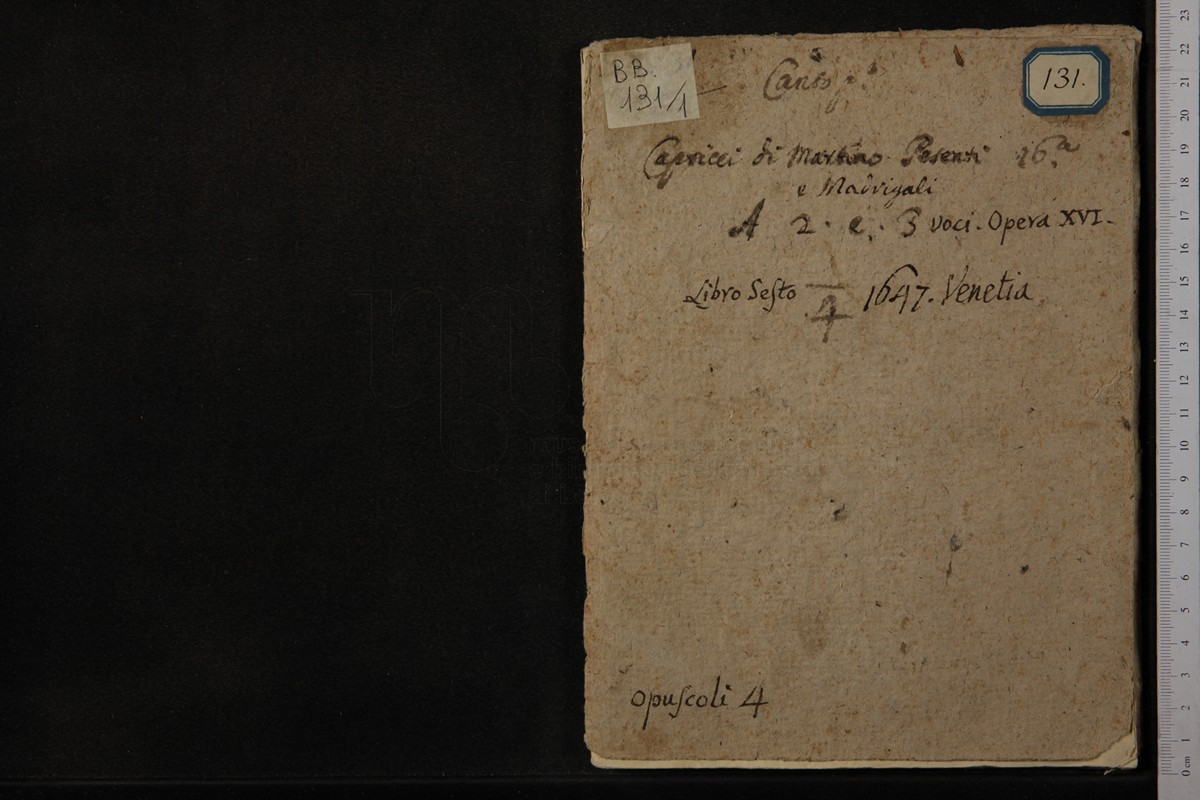 BB.
131/1
131.
Canto
Capricci di Martino Pesenti 16.a
e Madrigali
A 2. e. 3 voci. Opera XVI.
Libro Sesto 4 1647. Venetia
opuscoli 4
23
22
21
20
19
18
17
16
15
14
13
12
11
10
9
8
7
6
5
4
3
2
1
0 cm